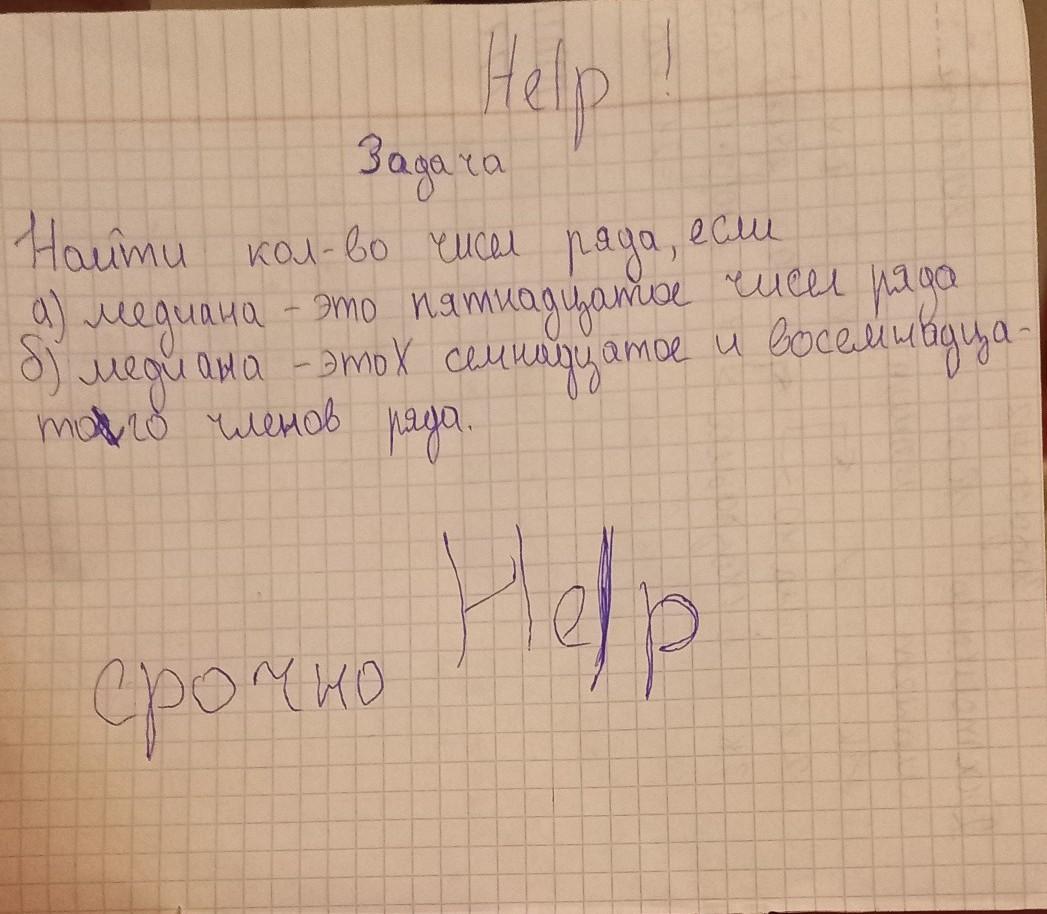 Help !
Задача
Найти кол-во чисел ряда, если
а) медиана - это пятнадцатое чисел ряда
б) медиана - это семнадцатое и восемнадца-
того членов ряда.
Help
срочно